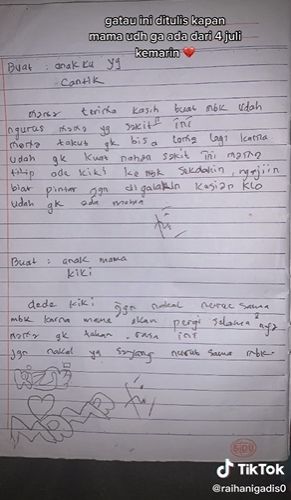 gatau ini ditulis kapan
mama udh ga ada dari 4 juli
kemarin ❤️
Buat : anakku yg
cantik
mama terima kasih buat mbk udah
ngurus mama yg sakit² ini
mama takut gk bisa lama lagi karna
udah gk kuat nahan sakit ini mama
titip ade kiki ke mbk sekolahin, ngajiin
biar pintar jgn di galakin kasian klo
udah gk ada mama
Buat : anak mama
kiki
dede kiki jgn nakal nurut sama
mbk karna mama akan pergi selama²nya
mama gk tahan rasa ini
jgn nakal ya sayang nurut sama mbk.
SIDU
TikTok
@raihanigadis0